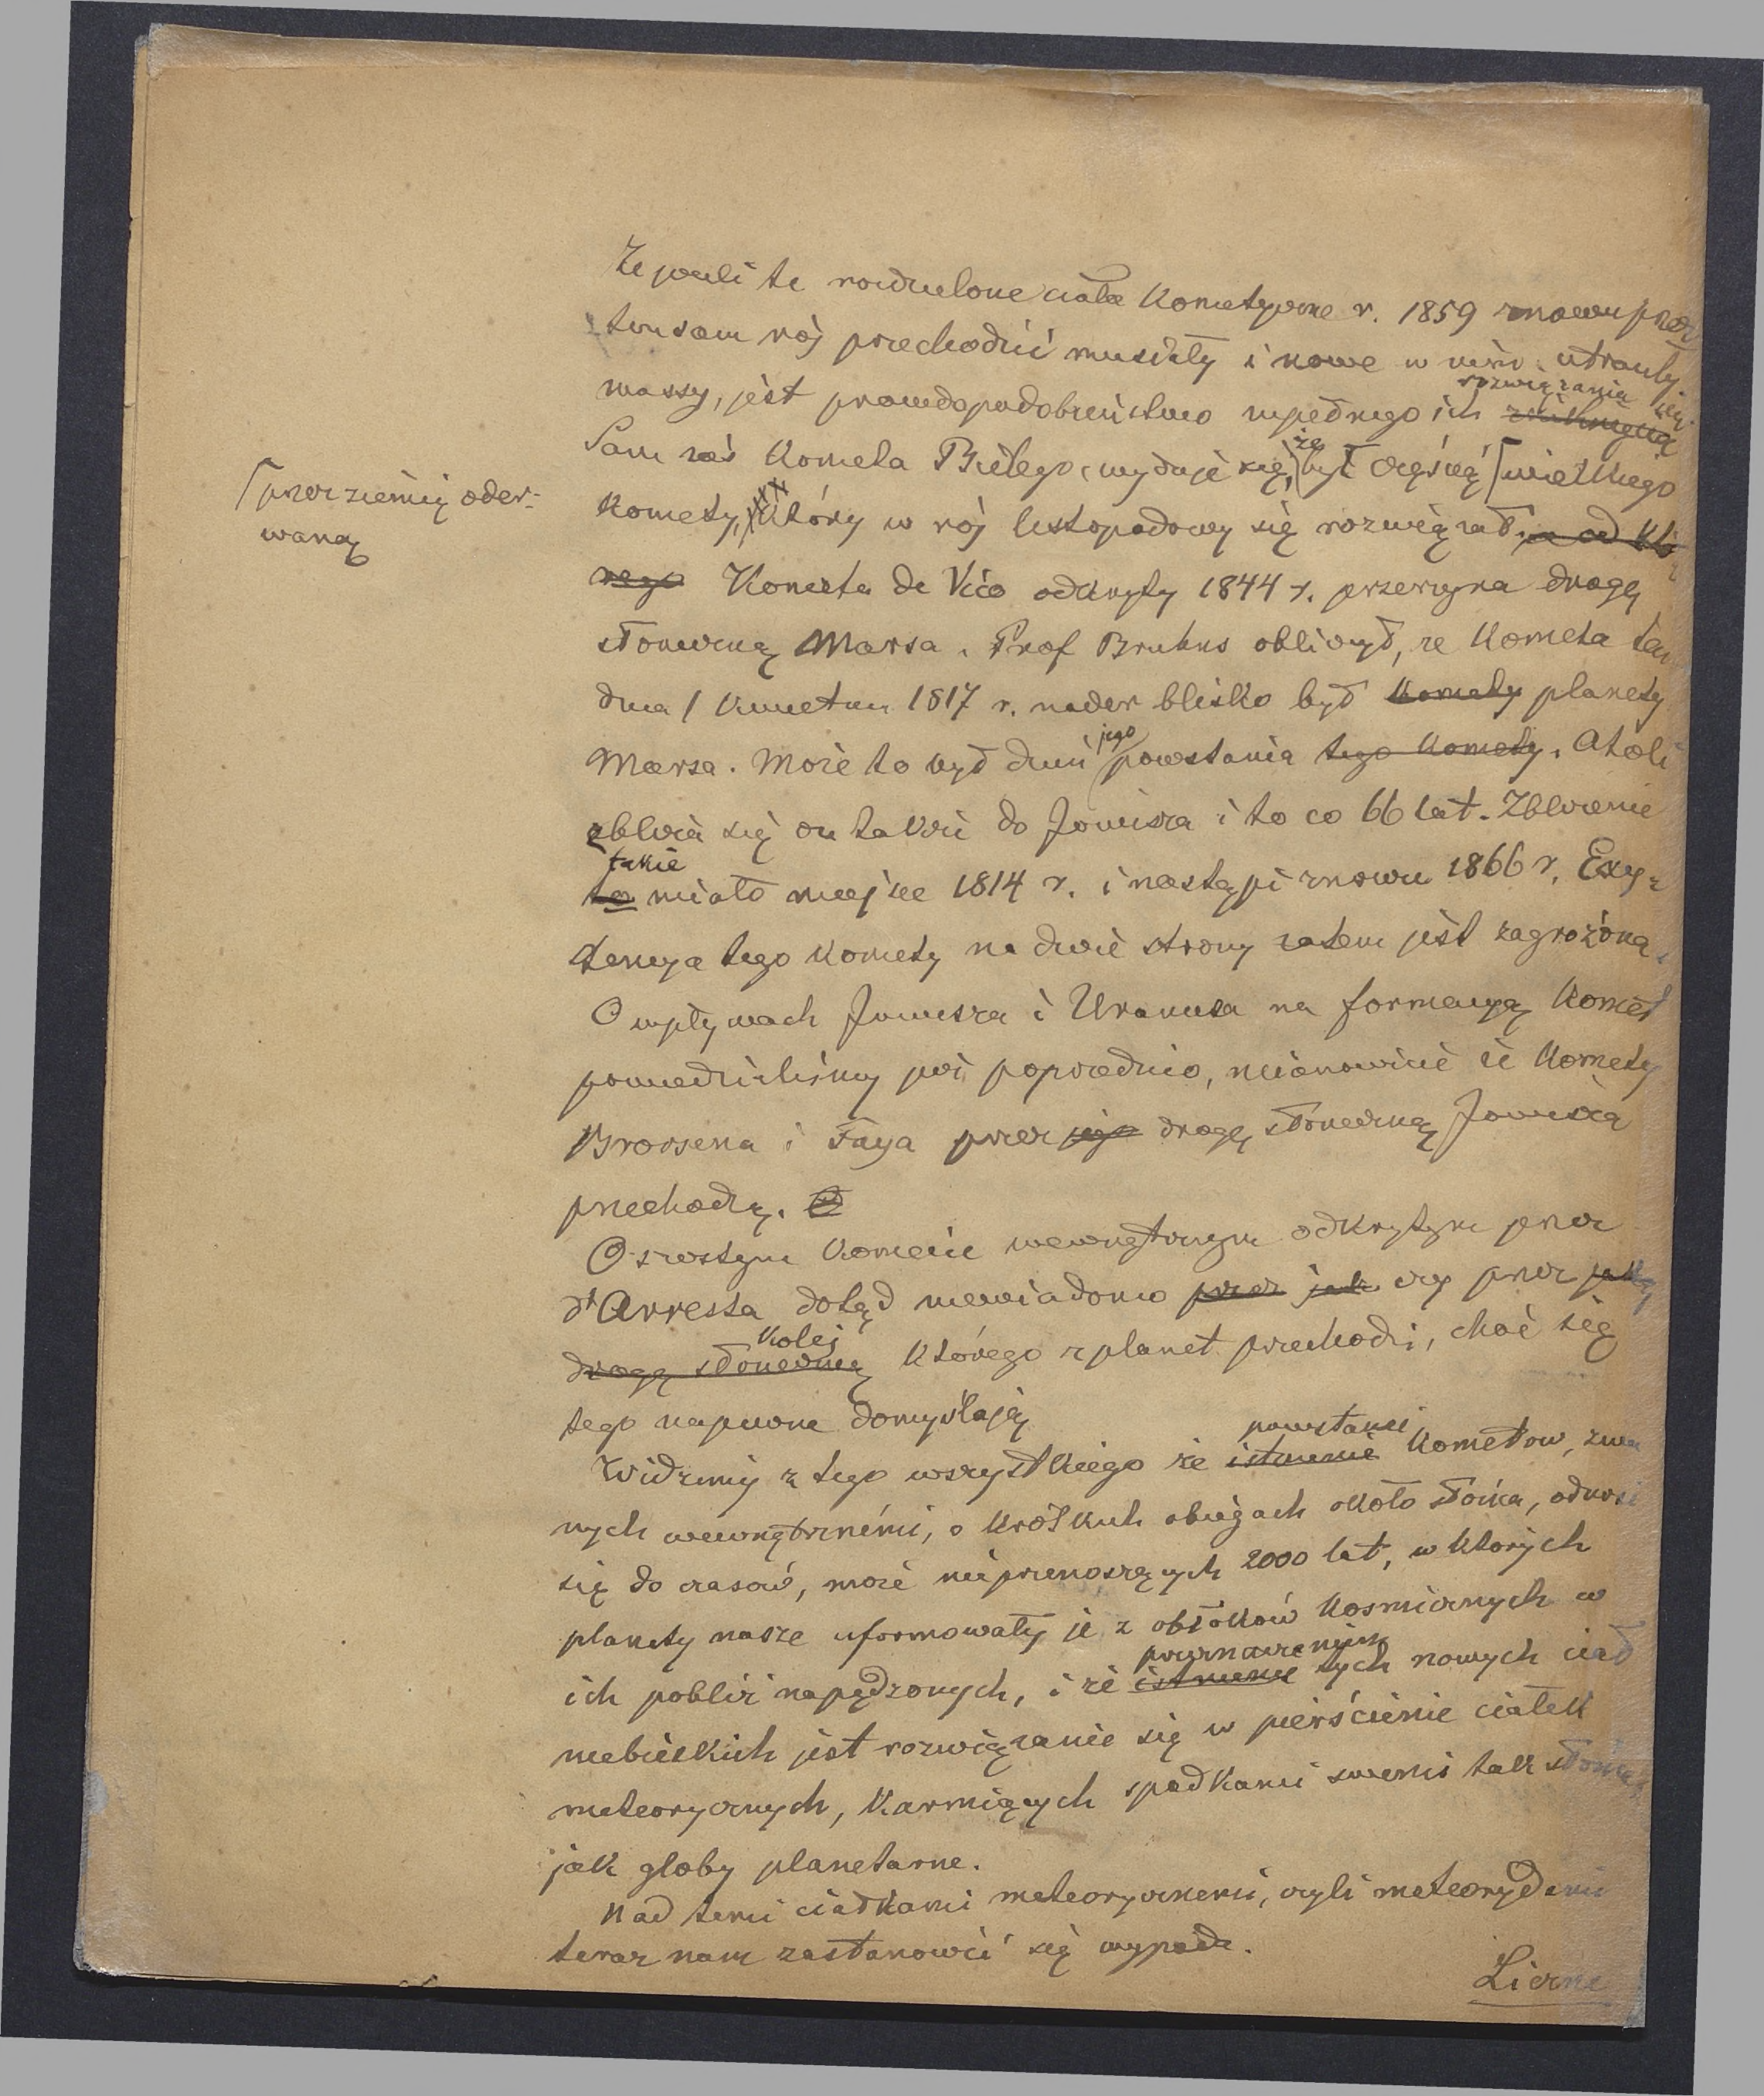 Że jeżeli te rozdzielone ciała kometyczne r. 1859 znowu przez
ten sam rój przechodzić musiały i nowe w nim utraciły
massy, jest prawdopodobieństwo zupełnego ich rozwiązania się
Sam zaś kometa Bielego, wydaje się, że był częścią ⌈wielkiego
⌈przez ziemię oder-
waną
komety, który w rój listopadowy się rozwiązał. a od któ
rego Kometa de Vico odkryty 1844 r. przerzyna drogę
słoneczną Marsa. Prof Bruhns obliczył, że kometa ten
dnia 1 kwietnia 1817 r. nader blisko był komety planety
Marsa. Może to był dzień jego powstania tego komety. Atoli
zbliża się on także do Jowisza i to co 66 lat. Zbliżenie
takie
to miało miejsce 1814 r. i nastąpi znowu 1866 r. Exys-
tencya tego komety na dwie strony zatem jest zagrożoną.
O wpływach Jowisza i Uranusa na formacyą komet
powiedzieliśmy już poprzednio, mianowicie że komety
Brorsena i Faya przez jego drogę słoneczną Jowisza
przechodzą. O
O szóstym komecie wewnętrznym odkrytym przez
d'Arresta dotąd niewiadomo przez jak czy przez jaką
kolej
drogę słoneczną którego z planet przechodzi, choć się
tego napewne domyślają
powstanie
Widzimy z tego wszystkiego że istnienie kometow, zwa
nych wewnętrznémi, o krótkich obiegach około słońca, odnosi
się do czasów, może nieprzenoszących 2000 lat, w których
planety nasze uformowały je z obłoków kosmicznych w
przeznaczeniem
ich pobliż napędzonych, i że istnienie tych nowych ciał
niebieskich jest rozwiązanie się w pierścienie ciałek
meteorycznych, karmiących spadkami swemi tak słońce
jak globy planetarne.
Nad temi ciałkami meteorycznemi, czyli meteorydami
teraz nam zastanowić się wypada.
Liczne